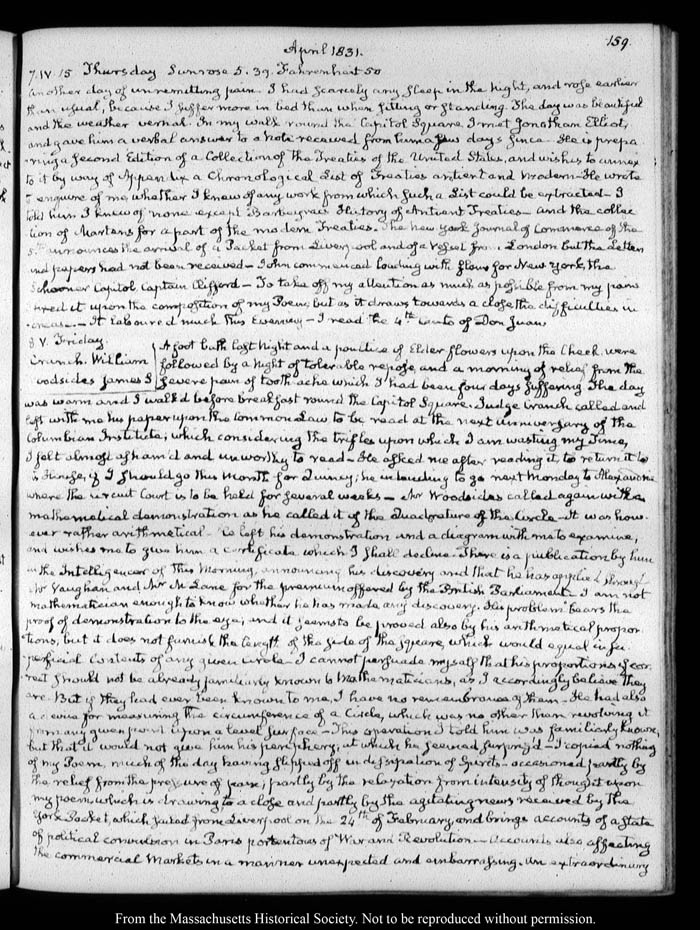 159.
April 1831.
7. IV: 15 Thursday Sunrose 5. 39. Fahrenheit 50
Another day of unremitting pain. I had scarcely any sleep in the Night, and rose earlier
than usual, because I suffer more in bed than when sitting or standing. The day was beautiful
and the weather vernal. In my walk round the Capitol Square, I met Jonathan Elliot,
and gave him a verbal answer to a Note received from him a few days since. He is prepa-
ring a Second Edition of a Collection of the Treaties of the United States, and wishes to annex
to it by way of Appendix a Chronological List of Treaties antient and modern. He wrote
to enquire of me, whether I knew of any work from which such a List could be extracted. I
told him I knew of none except Barbeyrac's History of Antient Treaties— and the collec-
tion of Martens for a part of the modern Treaties. The New York Journal of Commerce of the
5th announces the arrival of a Packet from Liverpool and of a vessel from London but the Letters
and papers had not been received— John commenced loading with flour for New York, the
Schooner Capitol Captain Clifford— To take off my attention as much as possible from my pain
I tried it upon the composition of my Poem, but as it draws towards a close the difficulties in-
crease.— It laboured much this Evening— I read the 4th Canto of Don Juan
8 V. Friday
Cranch. William
Woodsides James S
A foot bath last Night and a poultice of Elder flowers upon the Cheek were
followed by a Night of tolerable repose, and a morning of relief from the
severe pain of tooth-ache which I had been four days suffering. The day
was warm and I walk'd before breakfast round the Capitol Square. Judge Cranch called and
left with me his paper upon the Common Law to be read at the next anniversary of the
Columbian Institute; which considering the trifles upon which I am wasting my time,
I felt almost asham'd and unworthy to read— He asked me after reading it to return it to
his House, if I should go this Month for Quincy; he intending to go next Monday to Alexandria
where the circuit Court is to be held for several weeks— Mr Woodsides called again with a
mathematical demonstration as he called it of the Quadrature of the Circle— It was how-
ever rather arithmetical— he left his demonstration and a diagram with me to examine,
and wishes me to give him a certificate which I shall decline. There is a publication by him
in the Intelligencer of this Morning, announcing his discovery and that he has applied through
Mr Vaughan and Mr McLane for the premium offered by the British Parliament. I am not
mathematician enough to know whether he has made any discovery. His problem bears the
proof of demonstration to the eye, and it seems to be proved also by his arithmetical propor-
tions, but it does not furnish the length of the side of the square, which would equal in su-
perficial contents of any given circle— I cannot persuade myself that his proportions if cor-
rect should not be already familiarly known to Mathematicians, as I accordingly believe they
are. But if they had ever been known to me, I have no remembrance of them— He had also
a device for measuring the circumference of a Circle, which was no other than revolving it
from any given point upon a level surface— This operation I told him was familiarly known,
but that it would not give him his periphery; at which he seemed surpriz'd— I copied nothing
of my Poem, much of the day having slipped off in dissipation of Spirits— occasioned partly by
the relief from the pressure of pain; partly by the relaxation from intensity of thought upon
my poem which is drawing to a close and partly by the agitating news received by the
York Packet, which sailed from Liverpool on the 24th of February, and brings accounts of a State
of political convulsion in Paris portentous of War and Revolution— Accounts also affecting
the commercial Markets in a manner unexpected and embarrassing. An extraordinary
From the Massachusetts Historical Society. Not to be reproduced without permission.